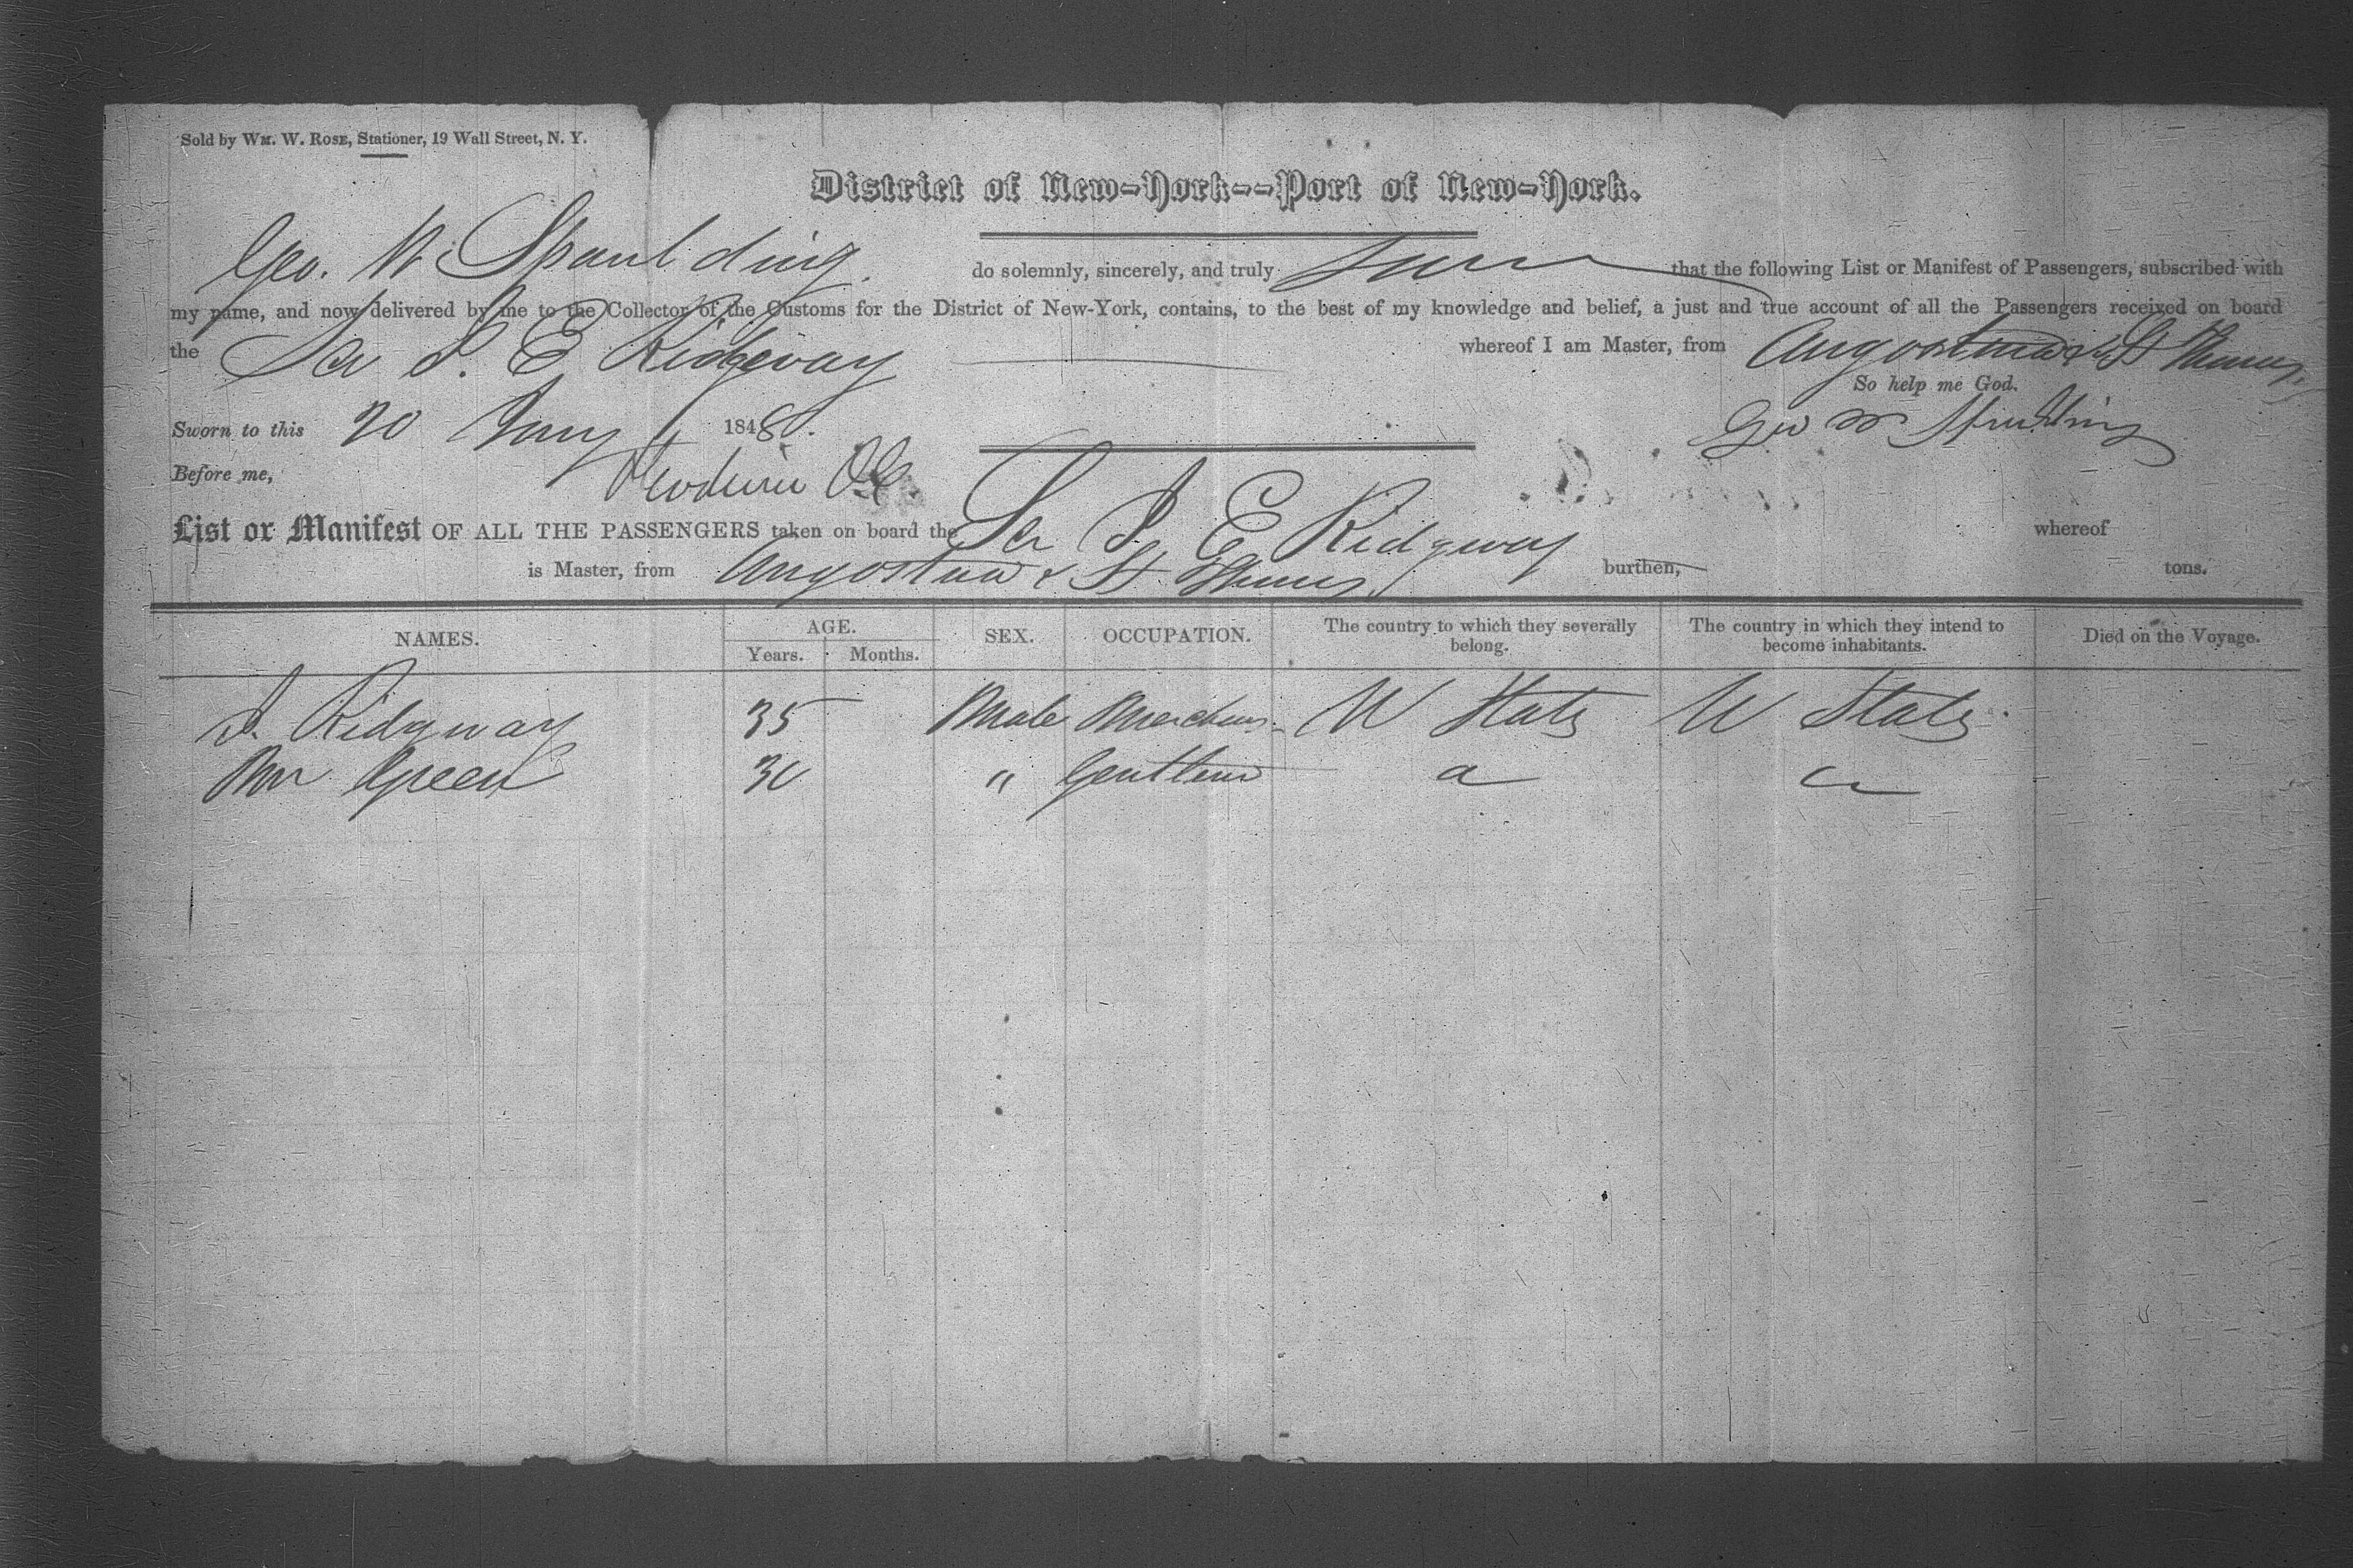 Sold by WM. W. ROSE, Stationer, 19 Wall Street, N. Y.
District of New-York--Port of New-York.
Geo. W Spaulding. do solemnly, sincerely, and truly that the following List or Manifest of Passengers, subscribed with
my name, and now delivered by me to the Collector of the Customs for the District of New-York, contains, to the best of my knowledge and belief, a just and true account of all the Passengers received on board
the E Ridgway whereof I am Master, from Angostura & St Thomas.
So help me God.
Sworn to this 20 Jany 1848. Geo W Spaulding
Before me,
List or Manifest OF ALL THE PASSENGERS taken on board the E Ridgway whereof
is Master, from Angostura & St Thomas burthen, tons.
NAMES. AGE. SEX. OCCUPATION. The country to which they severally belong. The country in which they intend to become inhabitants. Died on the Voyage.
Years. Months.
Ridgway 35 Male U States U States
Mr Green 30 "